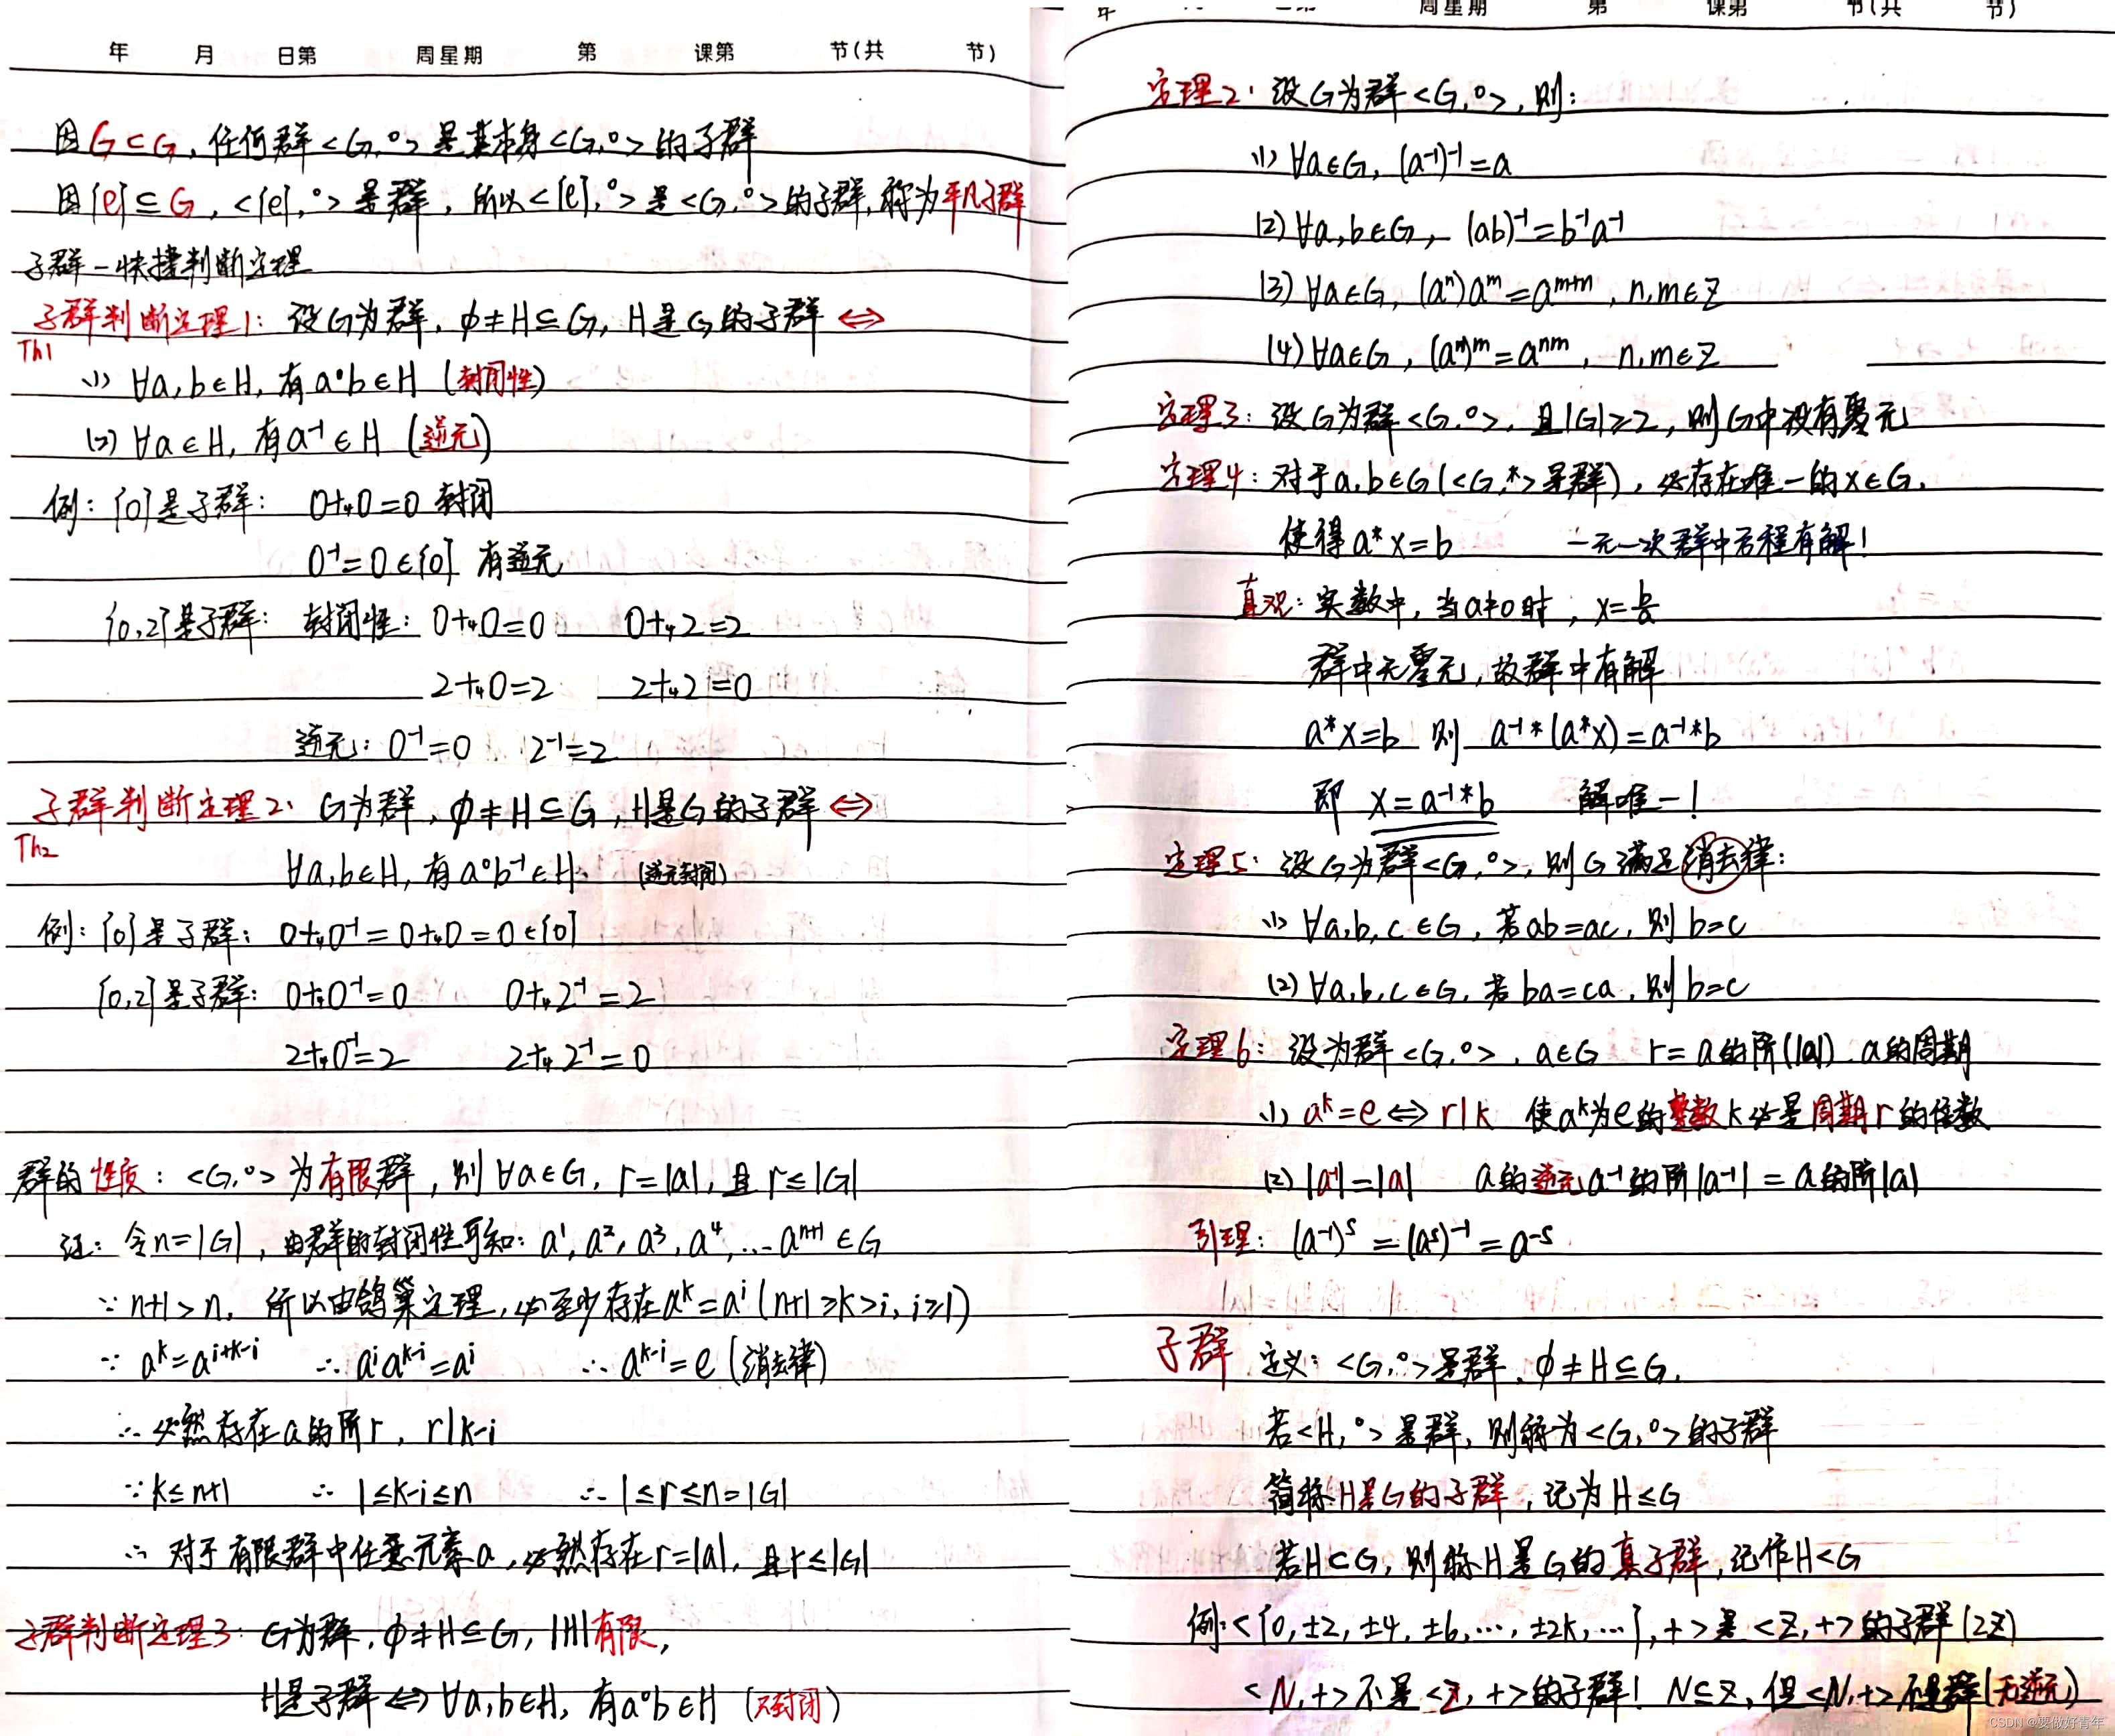 年 月 日第 周星期 第 课第 节(共 节)
因G⊂G, 任何群<G,°>是其本身<G,°>的子群
因{e}⊆G, <{e},°>是群, 所以<{e},°>是<G,°>的子群, 称为平凡子群
子群-快捷判断定理
子群判断定理1: 设G为群, ϕ≠H⊆G, H是G的子群⇔
Th1
(1) ∀a,b∈H, 有a°b∈H (封闭性)
(2) ∀a∈H, 有a⁻¹∈H (逆元)
例: {0}是子群: 0+₄0=0 封闭
0⁻¹=0∈{0} 有逆元
{0,2}是子群: 封闭性: 0+₄0=0 0+₄2=2
2+₄0=2 2+₄2=0
逆元: 0⁻¹=0 2⁻¹=2
子群判断定理2: G为群, ϕ≠H⊆G, H是G的子群⇔
Th2
∀a,b∈H, 有a°b⁻¹∈H. (逆元封闭)
例: {0}是子群: 0+₄0⁻¹=0+₄0=0∈{0}
{0,2}是子群: 0+₄0⁻¹=0 0+₄2⁻¹=2
2+₄0⁻¹=2 2+₄2⁻¹=0
群的性质: <G,°>为有限群, 则∀a∈G, r=|a|, 且r≤|G|
证: 令n=|G|, 由群的封闭性可知: a¹, a², a³, a⁴, … aⁿ⁺¹∈G
∵ n+1>n, 所以由鸽巢定理, 必至少存在aᵏ=aⁱ (n+1≥k>i, i≥1)
∵ aᵏ=aⁱ⁺ᵏ⁻ⁱ ∴ aⁱaᵏ⁻ⁱ=aⁱ ∴ aᵏ⁻ⁱ=e (消去律)
∴ 必然存在a的阶r, r|k-i
∵ k≤n+1 ∴ 1≤k-i≤n ∴ 1≤r≤n=|G|
∴ 对于有限群中任意元素a, 必然存在r=|a|, 且r≤|G|
子群判断定理3: G为群, ϕ≠H⊆G, |H|有限,
H是子群⇔∀a,b∈H, 有a°b∈H (只封闭)
年 周星期 第 课第 节(共 节)
定理2: 设G为群<G,°>, 则:
(1) ∀a∈G, (a⁻¹)⁻¹=a
(2) ∀a,b∈G, (ab)⁻¹=b⁻¹a⁻¹
(3) ∀a∈G, (aⁿ)aᵐ=aᵐ⁺ⁿ, n,m∈Z
(4) ∀a∈G, (aⁿ)ᵐ=aⁿᵐ, n,m∈Z
定理3: 设G为群<G,°>, 且|G|≥2, 则G中没有零元
定理4: 对于a,b∈G(<G,*>是群), 必存在唯一的x∈G,
使得a*x=b 一元一次群中方程有解!
直观: 实数中, 当a≠0时, x=b/a
群中无零元, 故群中有解
a*x=b 则 a⁻¹*(a*x)=a⁻¹*b
即 x=a⁻¹*b 解唯一!
定理5: 设G为群<G,°>, 则G满足消去律:
(1) ∀a,b,c∈G, 若ab=ac, 则b=c
(2) ∀a,b,c∈G, 若ba=ca, 则b=c
定理6: 设为群<G,°>, a∈G r=a的阶(|a|), a的周期
(1) aᵏ=e⇔r|k 使aᵏ为e的整数k必是周期r的倍数
(2) |a⁻¹|=|a| a的逆元a⁻¹的阶|a⁻¹|=a的阶|a|
引理: (a⁻¹)ˢ=(aˢ)⁻¹=a⁻ˢ
子群 定义: <G,°>是群, ϕ≠H⊆G,
若<H,°>是群, 则称为<G,°>的子群
简称H是G的子群, 记为H≤G
若H⊂G, 则称H是G的真子群, 记作H<G
例: <{0, ±2, ±4, ±6, …, ±2k, …}, +>是<Z,+>的子群(2Z)
<N,+>不是<Z,+>的子群! N⊆Z, 但<N,+>不是群(无逆元)
CSDN @要做好青年